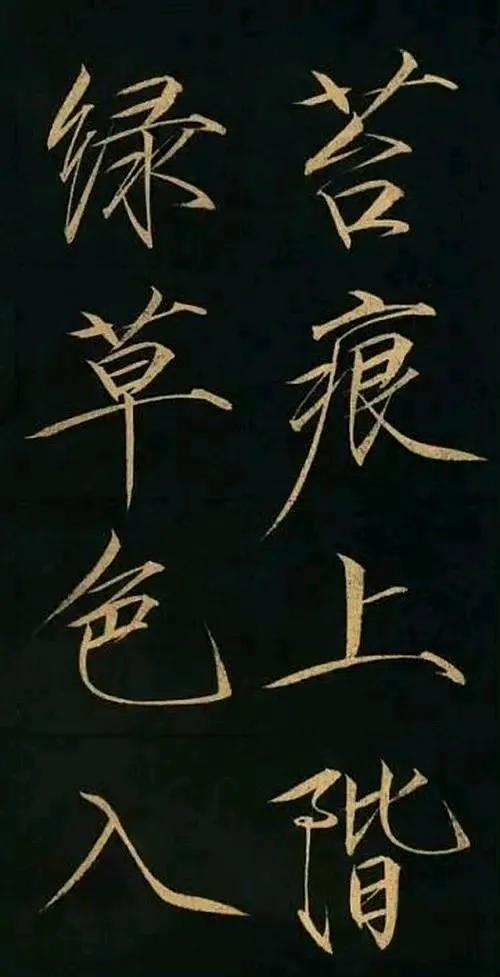 苔痕上階
绿草色入